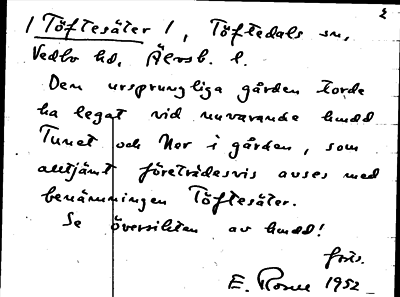 2
/ Töftesäter /, Töftedals sn,
Vedbo hd, Älvsb. l.
Den ursprungliga gården torde
ha legat vid nuvarande hmdd
Tunet och Nor i gården, som
alltjämt företrädesvis avses med
benämningen Töftesäter.
Se översikten av hmdd!
forts.
E. Rosell 1952